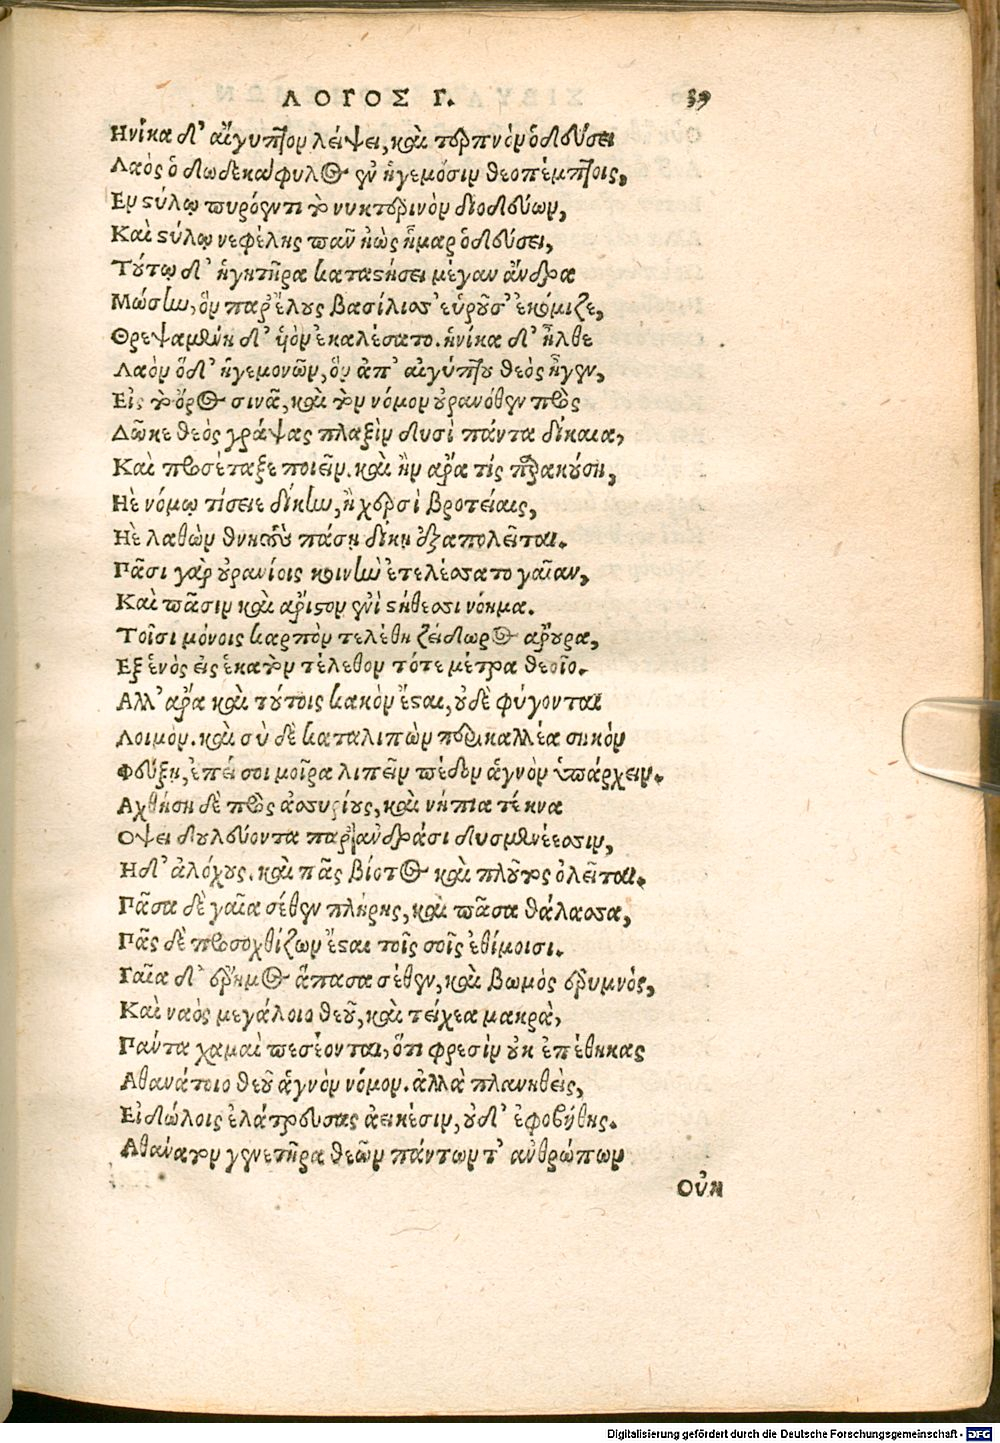 ΛΟΓΟΣ Γ. 39
Ηνίκα δ' αἴγυπτον λείψει, καὶ τερπνὸν ὁδεύσει
Λαὸς ὁ δωδεκάφυλος ἐν ἡγεμόσιν θεοπέμπτοις,
Εν στύλῳ πυρόεντι τὸ νυκτερινὸν διοδεύων,
Καὶ στύλῳ νεφέλης πᾶν ἠὼς ἦμαρ ὁδεύσει,
Τούτῳ δ' ἡγητῆρα καταστήσει μέγαν ἄνδρα
Μώσην, ὃν παρ' ἕλους βασίλισσ' εὑροῦσ' ἐκόμιζε,
Θρεψαμένη δ' υἱὸν ἐκαλέσατο. ἡνίκα δ' ἦλθε
Λαὸν ὅδ' ἡγεμονῶν, ὃν ἀπ' αἰγύπτου θεὸς ἦγεν,
Εἰς τὸ ὄρος σινᾶ, καὶ τὸν νόμον οὐρανόθεν πρὸς
Δῶκε θεὸς γράψας πλαξὶν δυσὶ πάντα δίκαια,
Καὶ προσέταξε ποιεῖν. καὶ ἢν ἄρα τίς παρακούσῃ,
Ηὲ νόμῳ τίσειε δίκην, ἢ χερσὶ βροτείαις,
Ηὲ λαθὼν θνητοὺς πάσῃ δίκῃ ἐξαπολεῖται.
Πᾶσι γὰρ οὐρανίοις κοινὴν ἐτελέσσατο γαῖαν,
Καὶ πᾶσιν καὶ ἄριστον ἐνὶ στήθεσσι νόημα.
Τοῖσι μόνοις καρπὸν τελέθῃ ζείδωρος ἄρουρα,
Εξ ἑνὸς εἰς ἑκατὸν τέλεθον τότε μέτρα θεοῖο.
Αλλ' ἄρα καὶ τούτοις κακὸν ἔσται, οὐδὲ φύγονται
Λοιμόν. καὶ σὺ δὲ καταλιπὼν περικαλλέα σηκὸν
Φεύξῃ, ἐπεί σοι μοῖρα λιπεῖν πέδον ἁγνὸν ὑπάρχειν.
Αχθήσῃ δὲ πρὸς ἀσσυρίους, καὶ νήπια τέκνα
Οψει δουλεύοντα παρ' ἀνδράσι δυσμενέεσσιν,
Ηδ' ἀλόχους. καὶ πᾶς βίοτος καὶ πλοῦτος ὀλεῖται.
Πᾶσα δὲ γαῖα σέθεν πλήρης, καὶ πᾶσα θάλασσα,
Πᾶς δὲ προσοχθίζων ἔσται τοῖς σοῖς ἐθίμοισι.
Γαῖα δ' ἔρημος ἅπασα σέθεν, καὶ βωμὸς ἐρυμνὸς,
Καὶ ναὸς μεγάλοιο θεοῦ, καὶ τείχεα μακρὰ,
Πάντα χαμαὶ πεσέονται, ὅτι φρεσὶν οὐκ ἐπέθηκας
Αθανάτοιο θεοῦ ἁγνὸν νόμον. ἀλλὰ πλανηθεὶς,
Εἰδώλοις ἐλάτρευσας ἀεικέσιν, οὐδ' ἐφοβήθης.
Αθάνατον γενετῆρα θεῶν πάντων τ' ἀνθρώπων
Οὐκ
Digitalisierung gefördert durch die Deutsche Forschungsgemeinschaft - DFG